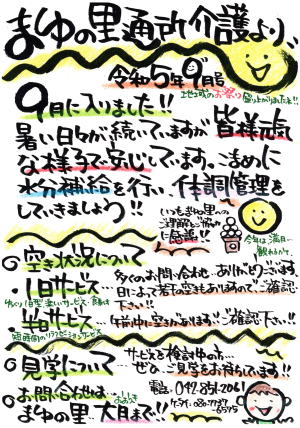 まゆの里通所介護より、
令和5年9月号
地域のお祭り盛り上がりましたネ!!
9月に入りました!!
暑い日々が続いていますが皆様元気
な様子で安心しています。こまめに
水分補給を行い、体調管理を
していきましょう!!
いつもまゆの里への
ご理解とご協力
に感謝!!
今年は満月
観れるかな?
◎空き状況について
・1日サービス…
多くのお問い合わせ、ありがとうございます。
日によって若干の空きもありますのでご確認
下さい!!
・半日サービス…
短時間のリハビリテーションサービス
午前中に空きがあります!ご確認下さい!!
◎見学について
サービスを検討中の方…
ぜひご見学をお待ちしています!!
◎お問い合わせは…
まゆの里 大月まで!!
おおつき
電話 042-851-2061
ケータイ 080-7737-6595